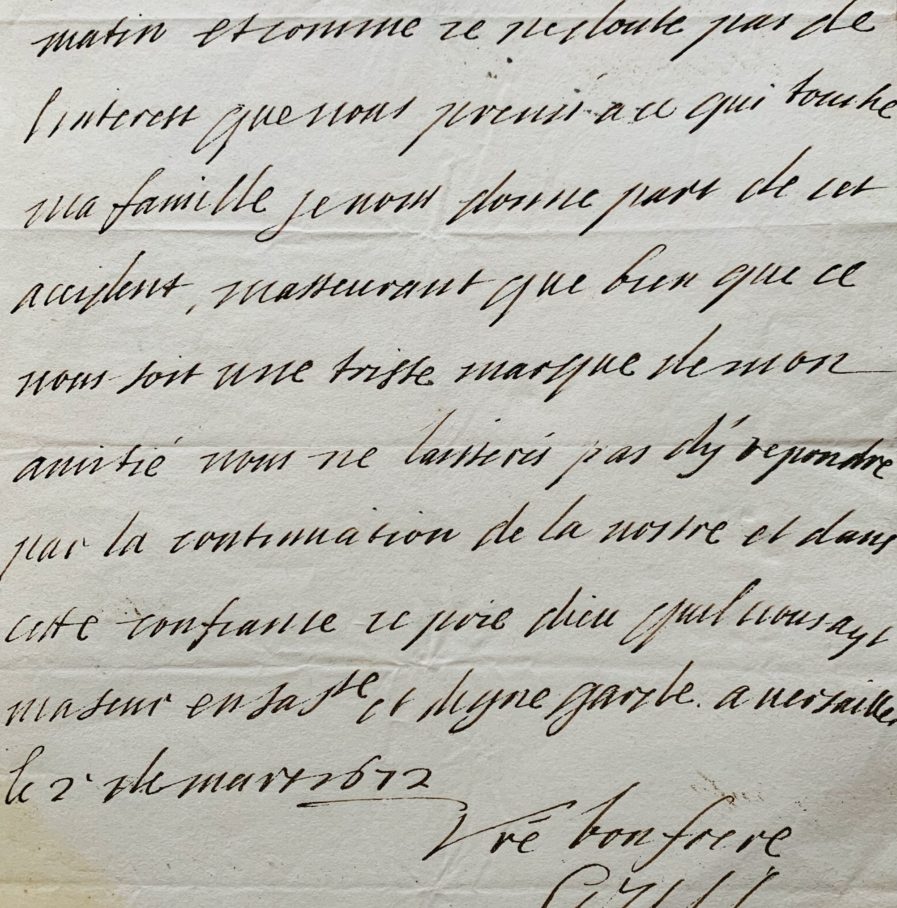 matin et comme ie ne doute pas de
l'interest que vous prenés a ce qui touche
ma famille je vous donne part de cet
accident, masseurant que bien que ce
vous soit une triste marque de mon
amitié vous ne laisserés pas dÿ repondre
par la continuation de la vostre et dans
cette confiance ie prie dieu quil vous ayt
ma seur en sa ste et digne garde. a versailles
le 2 de mars 1672
Vre bon frere